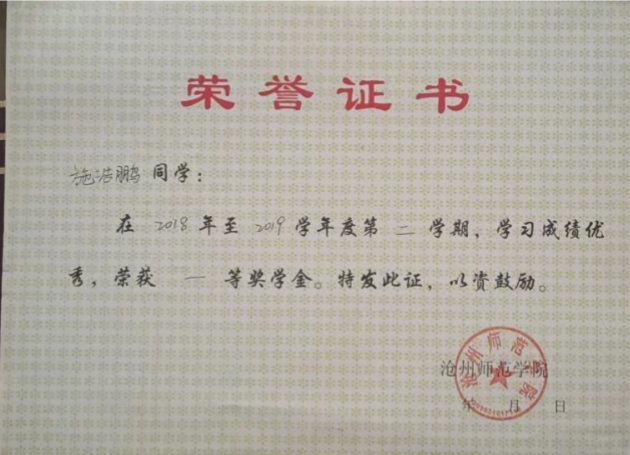 荣誉证书
施浩鹏同学：
在2018年至2019学年度第二学期，学习成绩优
秀，荣获一等奖学金。特发此证，以资鼓励。
沧州师范学院
沧州师范学院
年 月 日